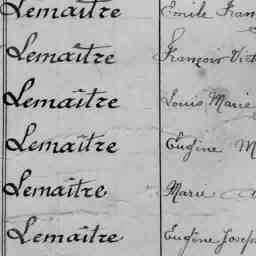 Lemaître Emile Fran
Lemaître François Vict
Lemaître Louis Marie
Lemaître Eugène M
Lemaître Marie
Lemaître Eugène Josep